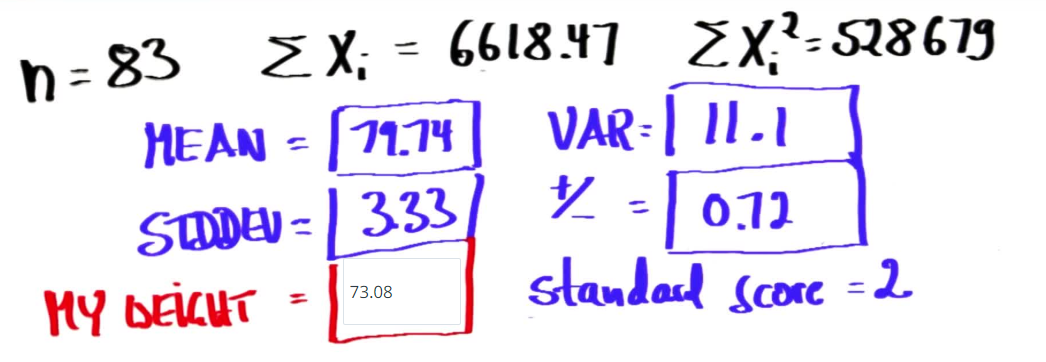 n = 83 Σ Xᵢ = 6618.47 ΣXᵢ² = 528679
MEAN = 79.74 VAR = 11.1
STDDEV = 3.33 +/- = 0.72
MY WEIGHT = 73.08 standard score = 2